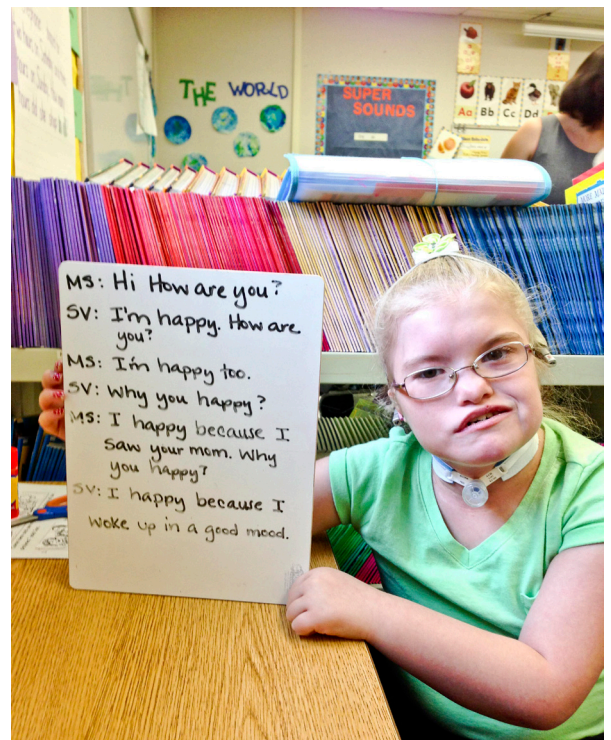 THE WORLD
SUPER
SOUNDS
Aa Bb Cc Dd
MS: Hi How are you?
SV: I'm happy. How are
you?
MS: I'm happy too.
SV: Why you happy?
MS: I happy because I
saw your mom. Why
you happy?
SV: I happy because I
woke up in a good mood.